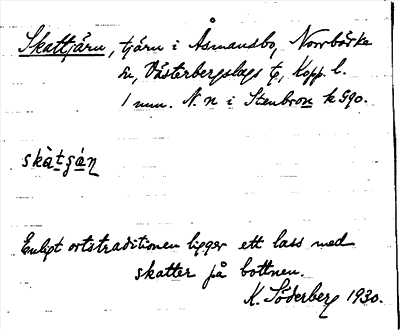 Skattjärn, tjärn i Åsmansbo, Norrbärke
sn, Västerbergslags tg, Kopp. l.
1 mm. N. n i Stenbron k 590.
skàtɟá̠ṇ
Enligt ortstraditionen ligger ett lass med
skatter på bottnen.
K. Söderberg 1930.